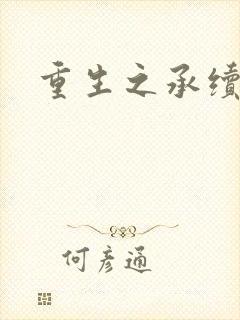 重生之承续
何彦通